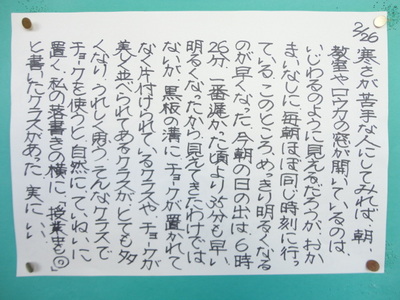 2/26 寒さが苦手な人にしてみれば、朝、
教室やロウカの窓が開いているのは、
いじわるのように見えるだろうが、おか
まいなしに、毎朝ほぼ同じ時刻に行っ
ている。このところ、めっきり明るくなる
のが早くなった。今朝の日の出は、6時
26分。一番遅かた頃より35分も早い。
明るくなったから、見えてきたわけでは
ないが、黒板の溝にチョークが置かれて
なく片付けられているクラスや、チョークが
美しく並べられてあるクラスが、とても多
くなり、うれしく思う。そんなクラスで
チョークを使うと、自然にていねいに
置く。私の落書きの横に、「授業中も◎」
と書いたクラスがあった。実にいい。